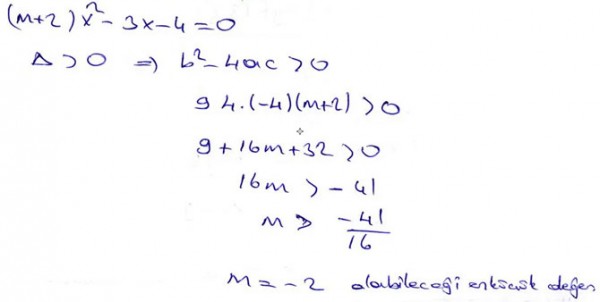 (m+2)x²-3x-4=0
Δ>0 ⇒ b²-4ac>0
9 4.(-4)(m+2)>0
9+16m+32>0
16m>-41
m> -41/16
m=-2 alabileceği en küçük değer